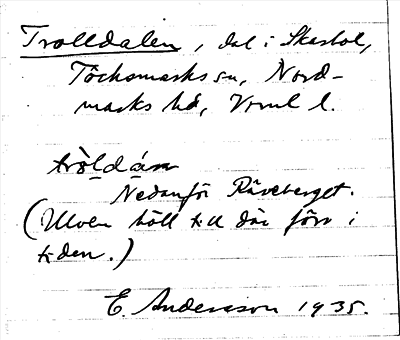 Trolldalen, dal i Skarbol,
Töcksmarks sn, Nord-
marks hd, Vrml l.
tròldá̱ṉ
Nedanför Räveberget.
(Ulven höll till där förr i
tiden.)
E. Andersson 1935.